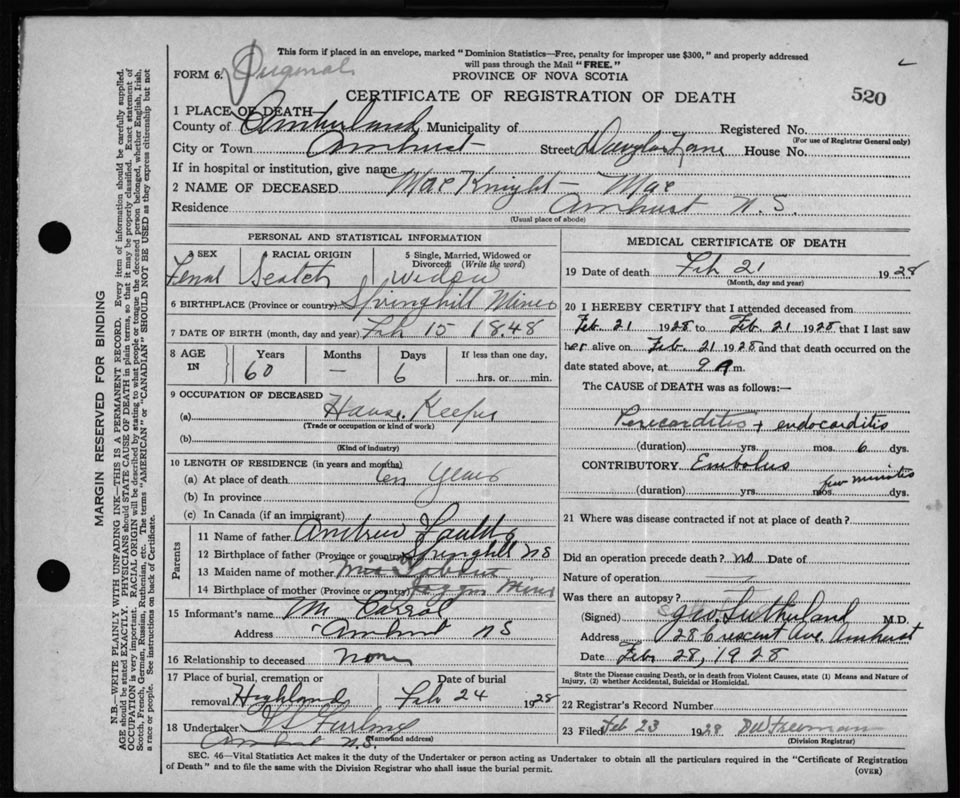 This form if placed in an envelope, marked "Dominion Statistics—Free, penalty for improper use $300," and properly addressed
will pass through the Mail "FREE."
FORM 6. Original
PROVINCE OF NOVA SCOTIA
CERTIFICATE OF REGISTRATION OF DEATH
520
1 PLACE OF DEATH
County of Cumberland Municipality of Registered No.
(For use of Registrar General only)
City or Town Amherst Street Douglas Lane House No.
If in hospital or institution, give name
2 NAME OF DECEASED MacKnight — Mae
Residence Amherst N.S.
(Usual place of abode)
PERSONAL AND STATISTICAL INFORMATION
3 SEX 4 RACIAL ORIGIN 5 Single, Married, Widowed or
Divorced: (Write the word)
Femal Scotch widow
6 BIRTHPLACE (Province or country) Springhill Mines
7 DATE OF BIRTH (month, day and year) Feb 15 1848
8 AGE IN Years Months Days If less than one day,
60 — 6 hrs. or min.
9 OCCUPATION OF DECEASED
(a) House Keeper
(Trade or occupation or kind of work)
(b)
(Kind of industry)
10 LENGTH OF RESIDENCE (in years and months)
(a) At place of death ten years
(b) In province
(c) In Canada (if an immigrant)
Parents
11 Name of father Andrew
12 Birthplace of father (Province or country) Springhill NS
13 Maiden name of mother
14 Birthplace of mother (Province or country) Mines
15 Informant's name M Carrol
Address Amherst NS
16 Relationship to deceased none
17 Place of burial, cremation or Date of burial
removal Highland Feb 24 1928
18 Undertaker Furlong
(Name and address)
Amherst N.S.
MEDICAL CERTIFICATE OF DEATH
19 Date of death Feb 21 1928
(Month, day and year)
20 I HEREBY CERTIFY that I attended deceased from
Feb. 21 1928 to Feb. 21 1928 that I last saw
her alive on Feb. 21 1928 and that death occurred on the
date stated above, at 9 A m.
The CAUSE of DEATH was as follows:—
Pericarditis + endocarditis
(duration) yrs. mos. 6 dys.
CONTRIBUTORY Embolus
(duration) yrs. mos. few minutes dys.
21 Where was disease contracted if not at place of death?
Did an operation precede death? no Date of
Nature of operation —
Was there an autopsy?
(Signed) Geo. Sutherland M.D.
Address 28 Crescent Ave. Amherst
Date Feb 28, 1928
State the Disease causing Death, or in death from Violent Causes, state (1) Means and Nature of
Injury, (2) whether Accidental, Suicidal or Homicidal.
22 Registrar's Record Number
23 Filed Feb 23 1928 Freeman
(Division Registrar)
SEC. 46—Vital Statistics Act makes it the duty of the Undertaker or person acting as Undertaker to obtain all the particulars required in the "Certificate of Registration
of Death" and to file the same with the Division Registrar who shall issue the burial permit. (OVER)
MARGIN RESERVED FOR BINDING
N.B.—WRITE PLAINLY WITH UNFADING INK—THIS IS A PERMANENT RECORD. Every item of information should be carefully supplied.
AGE should be stated EXACTLY. PHYSICIANS should STATE CAUSE OF DEATH in plain terms, so that it may be properly classified. Exact statement of
OCCUPATION is very important. RACIAL ORIGIN will be described by stating to what people or tongue the deceased person belonged, whether English, Irish,
Scotch, French, German, Russian, Ruthenian, etc. The terms "AMERICAN" or "CANADIAN" SHOULD NOT BE USED as they express citizenship but not
a race or people. See instructions on back of Certificate.